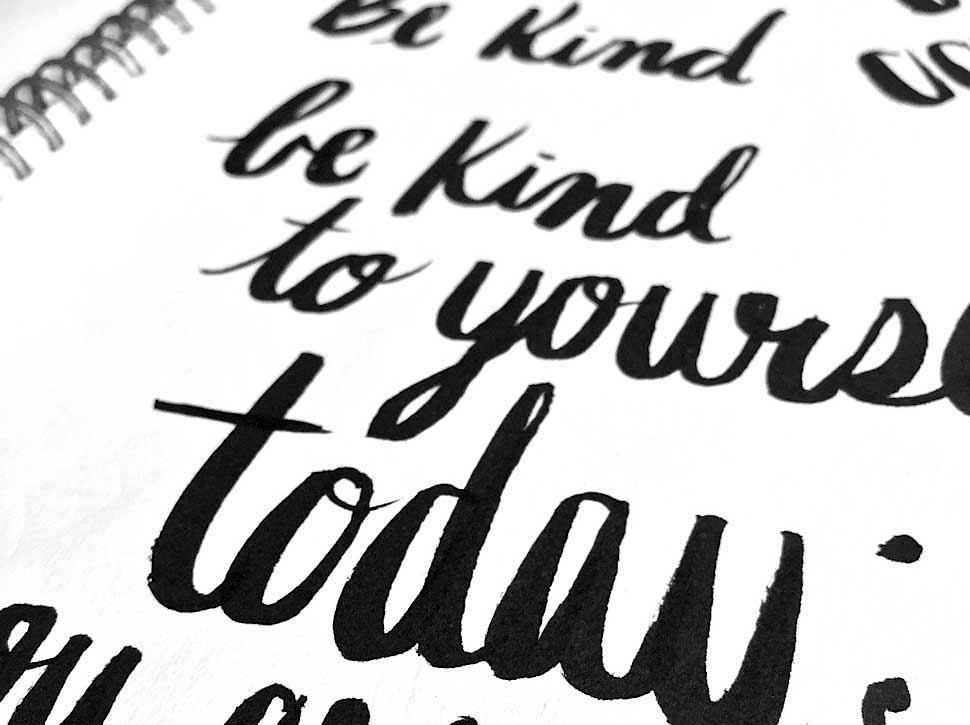 Be Kind
be Kind
to yourse
today